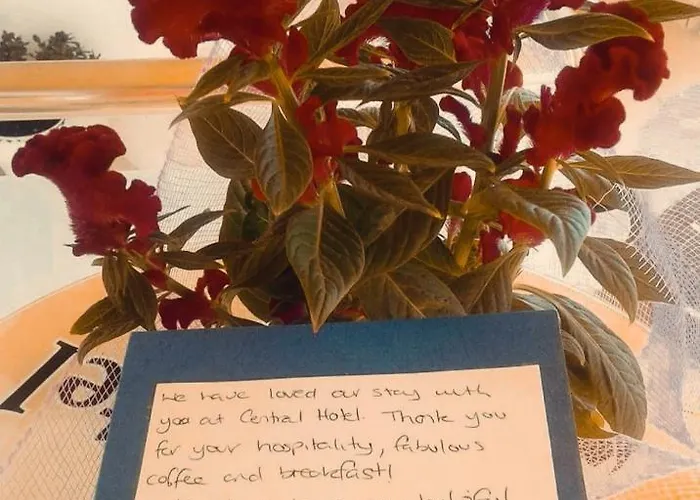 We have loved our stay with
you at Central Hotel. Thank you
for your hospitality, fabulous
coffee and breakfast!
la